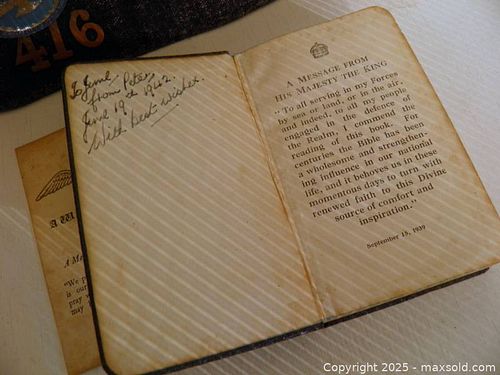 416
To
from Peter
June 19th 1942.
With best wishes.
A MESSAGE FROM
HIS MAJESTY THE KING
"To all serving in my Forces
by sea or land, or in the air,
and indeed, to all my people
engaged in the defence of
the Realm, I commend the
reading of this book. For
centuries the Bible has been
a wholesome and strengthen-
ing influence in our national
life, and it behoves us in these
momentous days to turn with
renewed faith to this Divine
source of comfort and
inspiration."
September 15, 1939
A W
A Me
"We p
is our
pray
may
Copyright © 2025 - maxsold.com